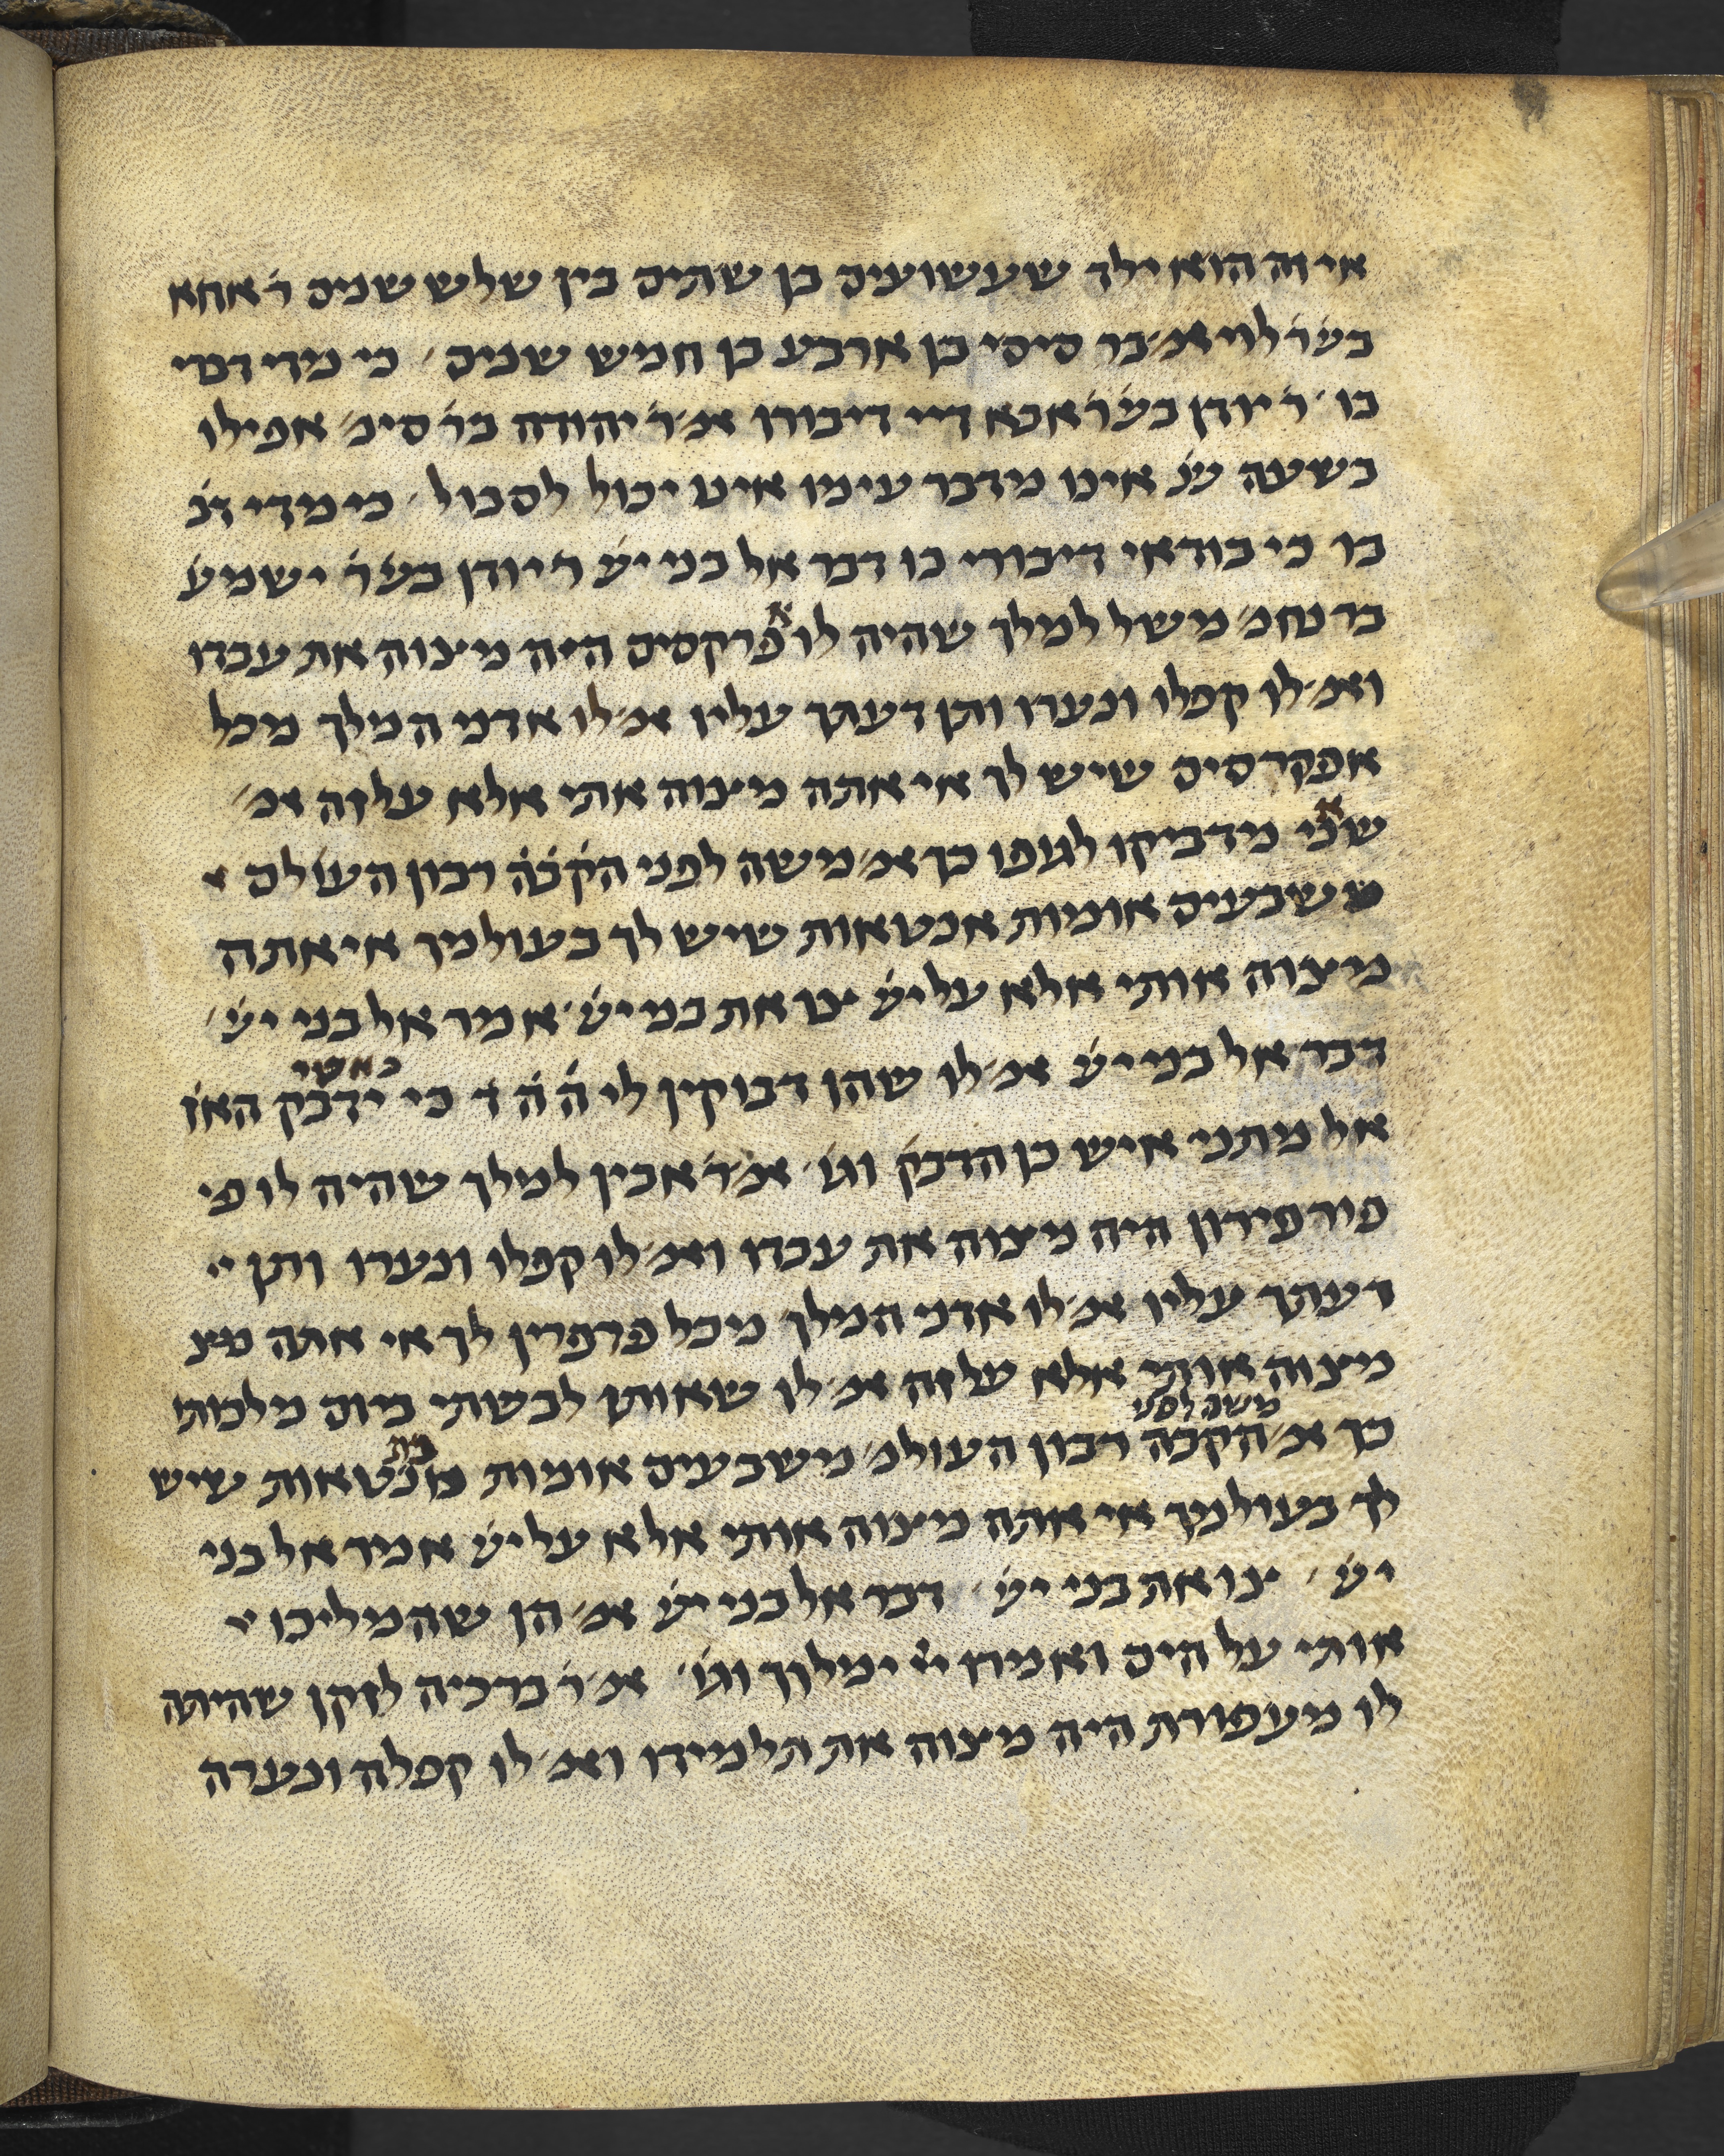 אי זה הוא ילד שעשועים בן שתים בין שלש שנים ר׳ אחא
בע׳ר׳ לוי אמ׳ בר סיסי בן ארבע בן חמש שנים׳ כי מדי דברי
בו׳ ר׳ יודן בע׳ר׳ אבא דיי דיבורו אמ׳ ר׳ יהודה בר׳ סימ׳ אפילו
בשעה ש׳נ׳ אינו מדבר עימו אינו יכול לסבול׳ כי מדי ד׳ב׳
בו כי בודאי דיבורי בו דבר אל בני יש׳ ר׳ יודן בע׳ר׳ ישמע׳
בר נחמ׳ משל למלך שהיה לו אפרקסים היה מצוה את עבדו
ואמ׳ לו קפלו ונערו ותן דעתך עליו אמ׳ לו אדני המלך מכל
אפקרסים שיש לך אי אתה מצוה אותי אלא על זה אמ׳
שאני מדביקו לגופו כך אמ׳ משה לפני הק׳ב׳ה׳ רבון העולם
משבעים אומות אנטאות שיש לך בעולמך אי אתה
מצוה אותי אלא על יש׳ צו את בני יש׳ אמר אל בני יש׳׳
דבר אל בני יש׳ אמ׳ לו שהן דבוקין לי ה׳ ה׳ ד׳ כי כאשר ידבק האז׳
אל מתני איש כן הדבק׳ וגו׳׳ אמ׳ ר׳ אבין למלך שהיה לו פי
פורפירון היה מצוה את עבדו ואמ׳ לו קפלו ונערו ותן
דעתך עליו אמ׳ לו אדני המלך מכל פרפרין לך אי אתה מצ
מצוה אותי אלא על זה אמ׳ לו שאותו לבשתי ביום מלכותי
כך אמ׳ משה לפני הקבה רבון העולמ׳ משבעים אומות אנטאות שיש
לך בעולמך אי אתה מצוה אותי אלא על יש׳ אמר אל בני
יש׳׳ צו את בני יש׳׳ דבר אל בני יש׳ אמ׳ הן שהמליכו
אותי על הים ואמרו ייי ימלוך וגו׳׳ אמ׳ ר׳ ברכיה לזקן שהיתה
לו מעפורת היה מצוה את תלמידו ואמ׳ לו קפלה ונערה